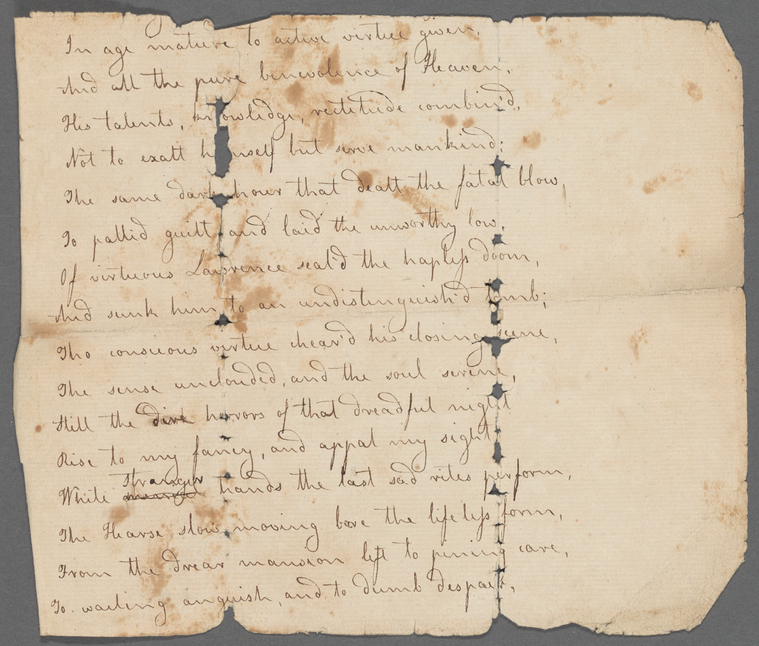 In age mature to active virtue given,
And all the pure benevolence of Heaven,
His talents, knowledge, rectitude combin'd,
Not to exalt himself but serve mankind;
The same dark hour that dealt the fatal blow,
To pallid guilt and laid the unworthy low,
Of virtuous Lawrence seal'd the hapless doom,
And sunk him to an undistinguish'd tomb;
Tho conscious virtue chear'd his closing scene,
The sense unclouded, and the soul serene,
Still the dire horrors of that dreadful night
Rise to my fancy, and appal my sight,
While stranger hands the last sad rites perform,
The Hearse slow moving bore the lifeless form,
From the drear mansion left to pining care,
To wailing anguish, and to dumb despair,